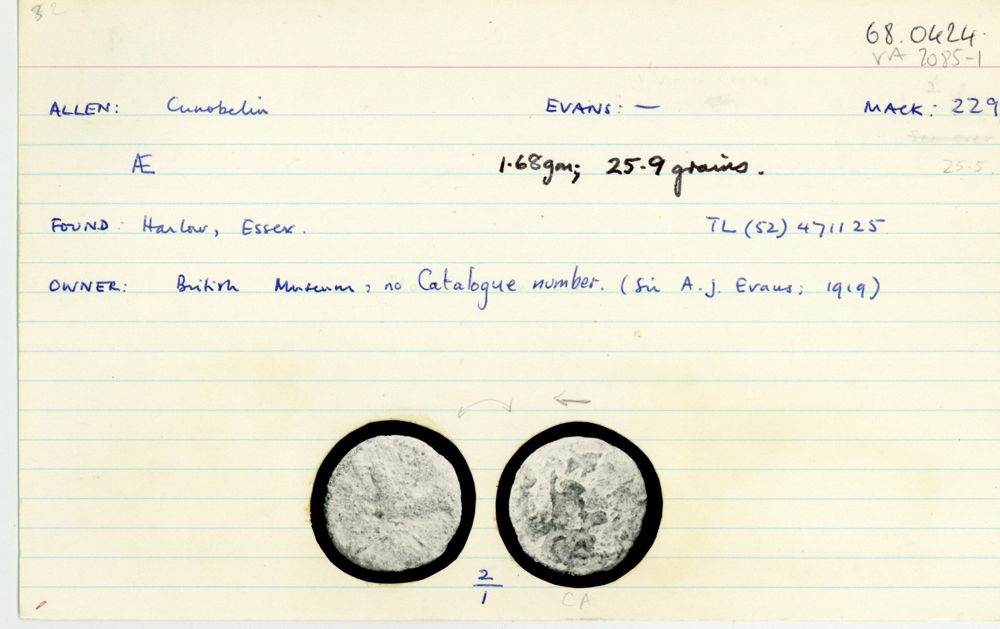 32
68.0424.
VA 2085-1
ALLEN: Cunobelin EVANS: — MACK: 229
Æ 1.68gm; 25.9 grains.
25.5.
FOUND: Harlow, Essex. TL (52) 471125
OWNER: British Museum, no Catalogue number. (Sir A.J. Evans; 1919)
2
1
CA